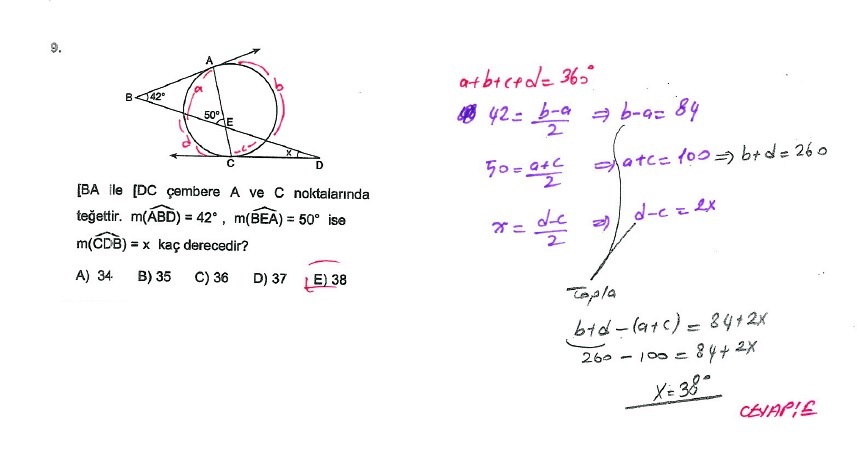 9.
A
B
42°
a
b
50°
E
d
c
C
x
D
[BA ile [DC çembere A ve C noktalarında
teğettir. m(ABD) = 42° , m(BEA) = 50° ise
m(CDB) = x kaç derecedir?
A) 34 B) 35 C) 36 D) 37 E) 38
a+b+c+d = 360°
42 = b-a/2 ⇒ b-a = 84
50 = a+c/2 ⇒ a+c = 100 ⇒ b+d = 260
x = d-c/2 ⇒ d-c = 2x
Topla
b+d - (a+c) = 84+2x
260 - 100 = 84 + 2x
x = 38°
CEVAP: E